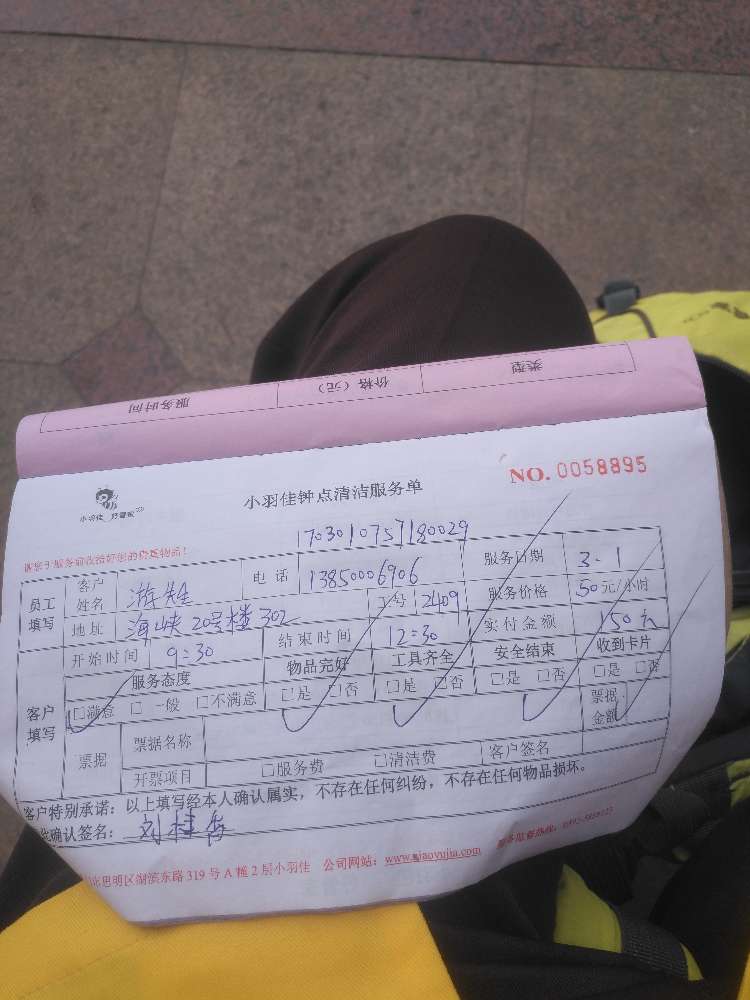 类型 价格（元） 服务时间
小羽佳
小羽佳钟点清洁服务单
NO. 0058895
1703010757180029
员工填写 客户姓名 游先生 电话 13850006906 服务日期 3.1
地址 海峡20号楼302 工号 2409 服务价格 50元/小时
客户填写 开始时间 9:30 结束时间 12:30 实付金额 150元
服务态度 物品完好 工具齐全 安全结束 收到卡片
□满意 □一般 □不满意 □是 □否 □是 □否 □是 □否 □是 □否
票据 票据名称 票据金额
开票项目 □服务费 □清洁费 客户签名
客户特别承诺：以上填写经本人确认属实，不存在任何纠纷，不存在任何物品损坏。
确认签名：刘桂香
思明区湖滨东路319号A幢2层小羽佳 公司网站：www.xiaoyujia.com 服务监督热线：